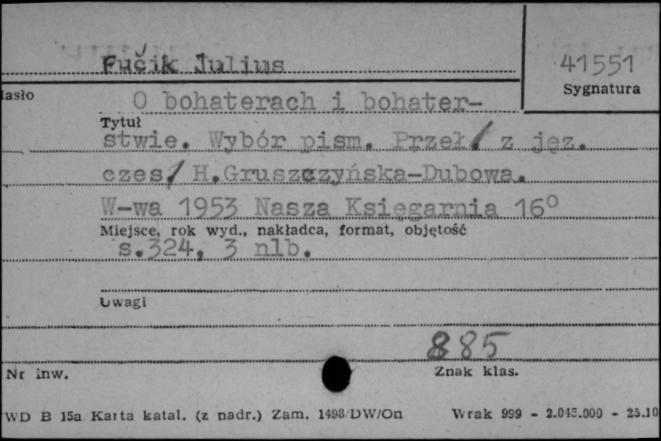 Fučik Julius
41551
Sygnatura
Hasło
O bohaterach i bohater-
Tytuł
stwie. Wybór pism. Przeł/ z jęz.
czes/ H.Gruszczyńska-Dubowa.
W-wa 1953 Nasza Księgarnia 16°
Miejsce, rok wyd., nakładca, format, objętość
s.324, 3 nlb.
Uwagi
885
Nr inw.
Znak klas.
WD B 15a Karta katal. (z nadr.) Zam. 1498/DW/On Wrak 999 - 2.045.000 - 25.10